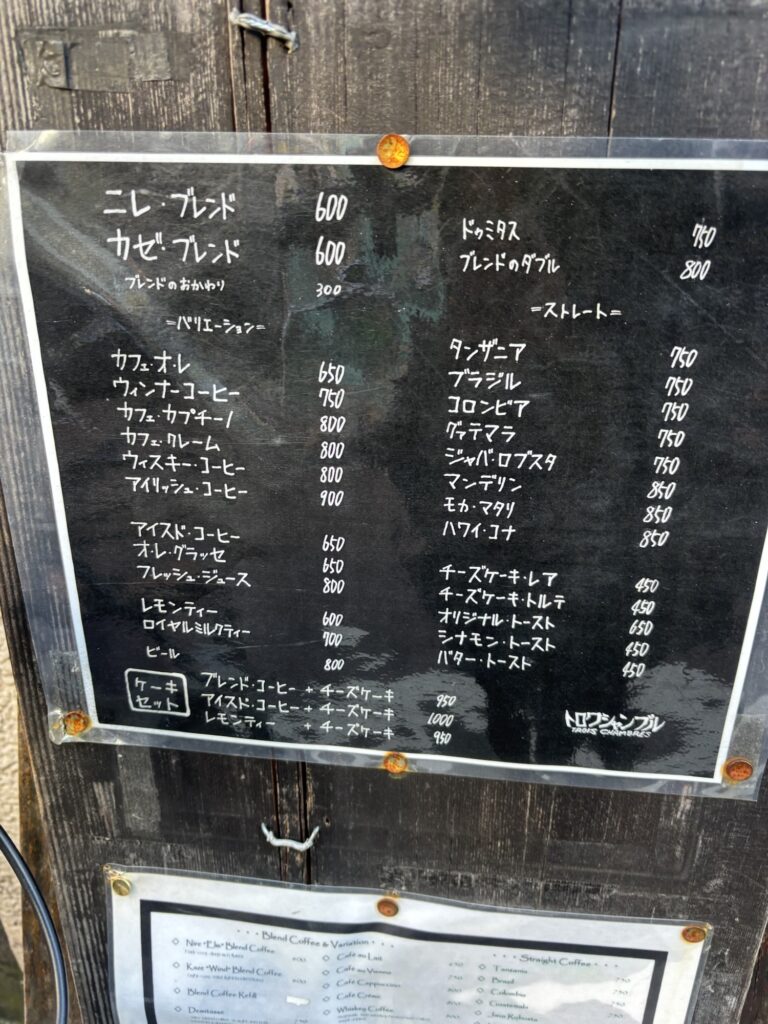 ニレ・ブレンド 600
カゼ・ブレンド 600
ブレンドのおかわり 300
=バリエーション=
カフェ・オ・レ 650
ウィンナーコーヒー 750
カフェ・カプチーノ 800
カフェ・クレーム 800
ウィスキー・コーヒー 800
アイリッシュ・コーヒー 900
アイスド・コーヒー 650
オ・レ・グラッセ 650
フレッシュ・ジュース 800
レモンティー 600
ロイヤルミルクティー 700
ビール 800
ドゥミタス 750
ブレンドのダブル 800
=ストレート=
タンザニア 750
ブラジル 750
コロンビア 750
グァテマラ 750
ジャバ・ロブスタ 750
マンデリン 850
モカ・マタリ 850
ハワイ・コナ 850
チーズケーキ・レア 450
チーズケーキ・トルテ 450
オリジナル・トースト 650
シナモン・トースト 450
バター・トースト 450
ケーキセット
ブレンド・コーヒー + チーズケーキ 950
アイスド・コーヒー + チーズケーキ 1000
レモンティー + チーズケーキ 950
トロワシャンブル
TROIS CHAMBRES
Blend Coffee & Variation
Nire "Elm" Blend Coffee 600
Kaze "Wind" Blend Coffee 600
Blend Coffee Refill
Demitasse
Café au Lait 650
Café au Vienna 750
Café Cappuccino 800
Café Crème 800
Whiskey Coffee
Straight Coffee
Tanzania 750
Brazil 750
Colombia 750
Guatemala 750
Java Robusta